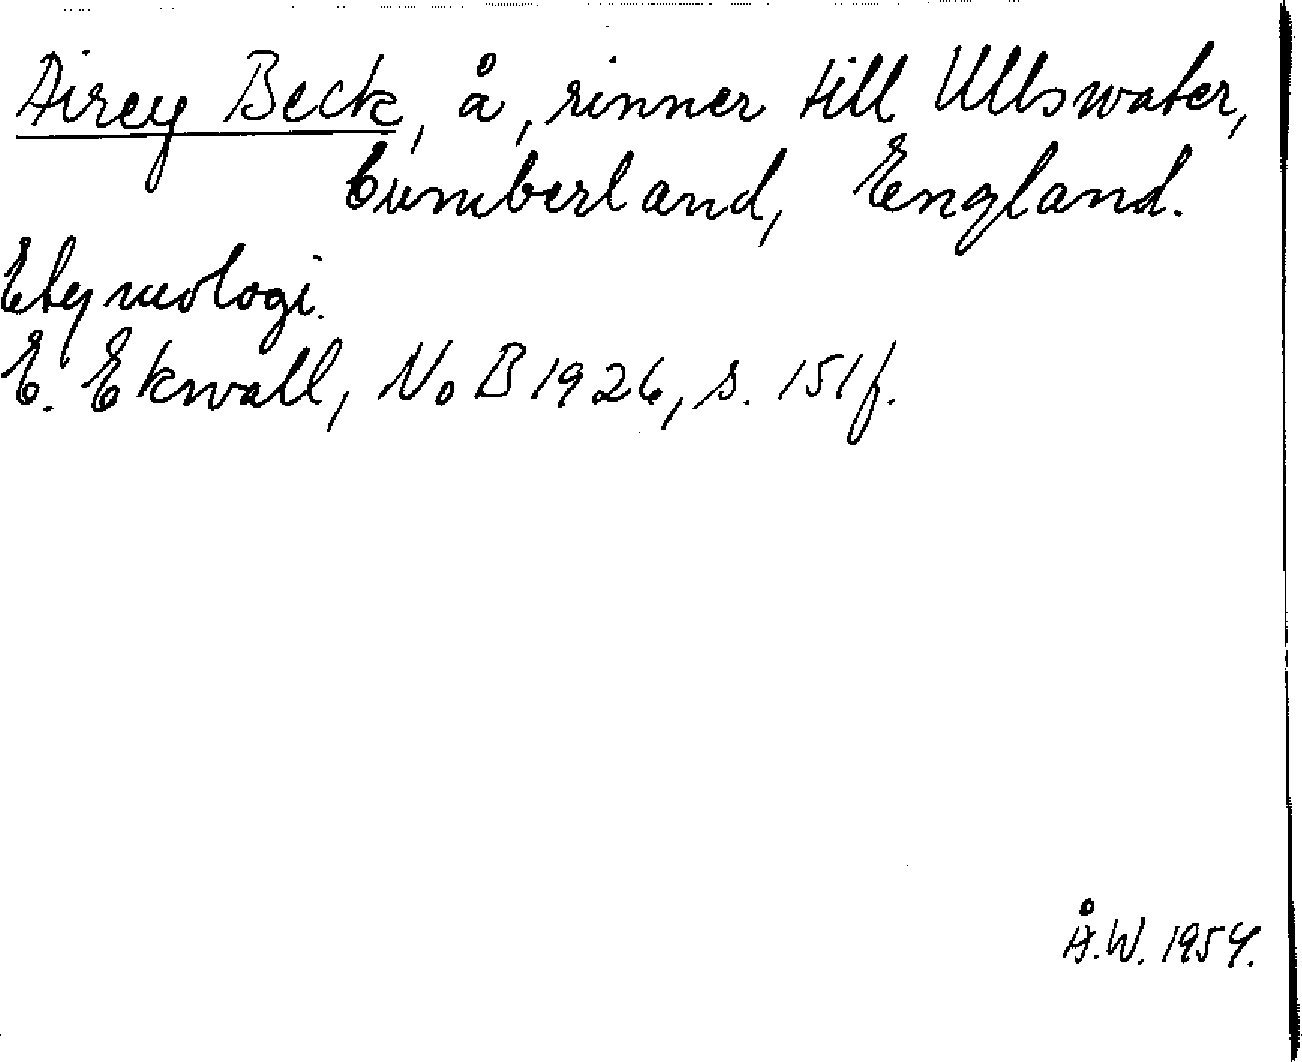 Airey Beck, å, rinner till Ullswater,
Cumberland, England.
Etymologi.
E. Ekwall, NoB 1926, s. 151f.
Å.W. 1954.